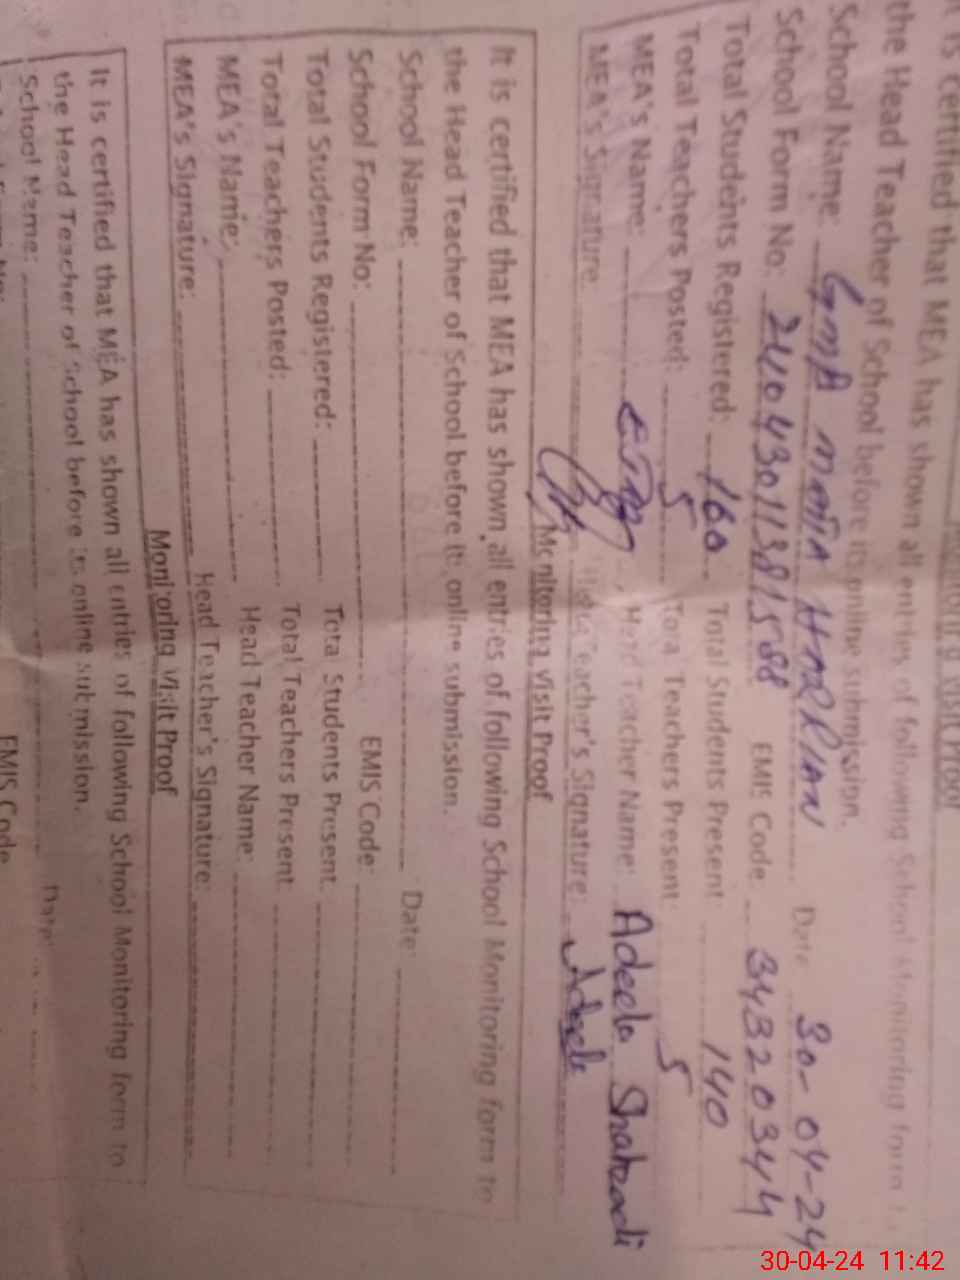 Monitoring Visit Proof
It is certified that MEA has shown all entries of following School Monitoring form to
the Head Teacher of School before its online submission.
School Name: Date: 30-04-24
School Form No: EMIS Code: 34320344
Total Students Registered: 160 Total Students Present: 140
Total Teachers Posted: 5 Total Teachers Present: 5
MEA's Name: Head Teacher Name: Adeela Shahzadi
MEA's Signature: Head Teacher's Signature: Adeela
Monitoring Visit Proof
It is certified that MEA has shown all entries of following School Monitoring form to
the Head Teacher of School before its online submission.
School Name: Date:
School Form No: EMIS Code:
Total Students Registered: Total Students Present:
Total Teachers Posted: Total Teachers Present:
MEA's Name: Head Teacher Name:
MEA's Signature: Head Teacher's Signature:
Monitoring Visit Proof
It is certified that MEA has shown all entries of following School Monitoring form to
the Head Teacher of School before its online submission.
School Name: Date:
EMIS Code
30-04-24 11:42